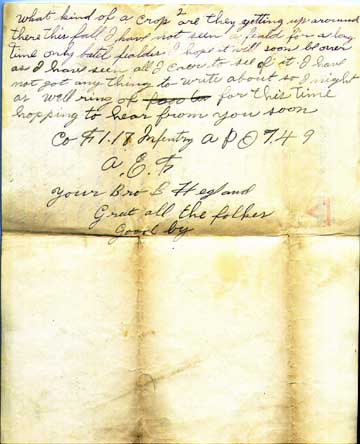 What kind of a crop are they getting up around
there this fall I have not seen a feald for a long
time only batel fealds. I hope it will soon bl over
as I have seen all I care to see of it I have
not got any thing to write about so I might
as well ring of for this time
hopping to hear from you soon
Co F. 118 Infentry A P O 749
A. E. F
Your Bro B Hegland
Grut all the folkes
Good by